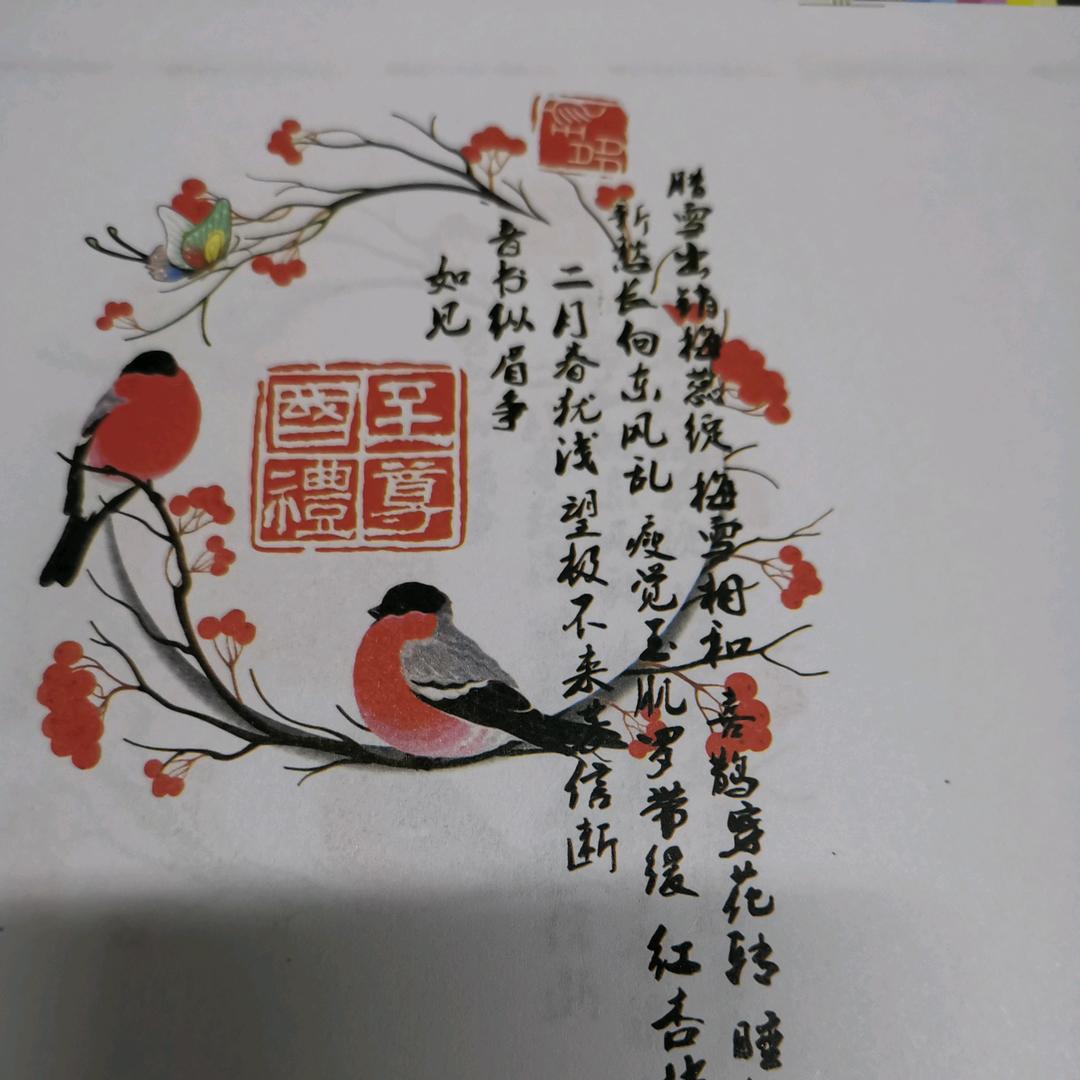 腊雪出销梅蕊绽 梅雪相和 喜鹊穿花转 睡
新愁长向东风乱 瘦觉玉肌罗带缓 红杏
二月春犹浅 望极不来芳信断
音书纵眉争
如见
至尊
國禮